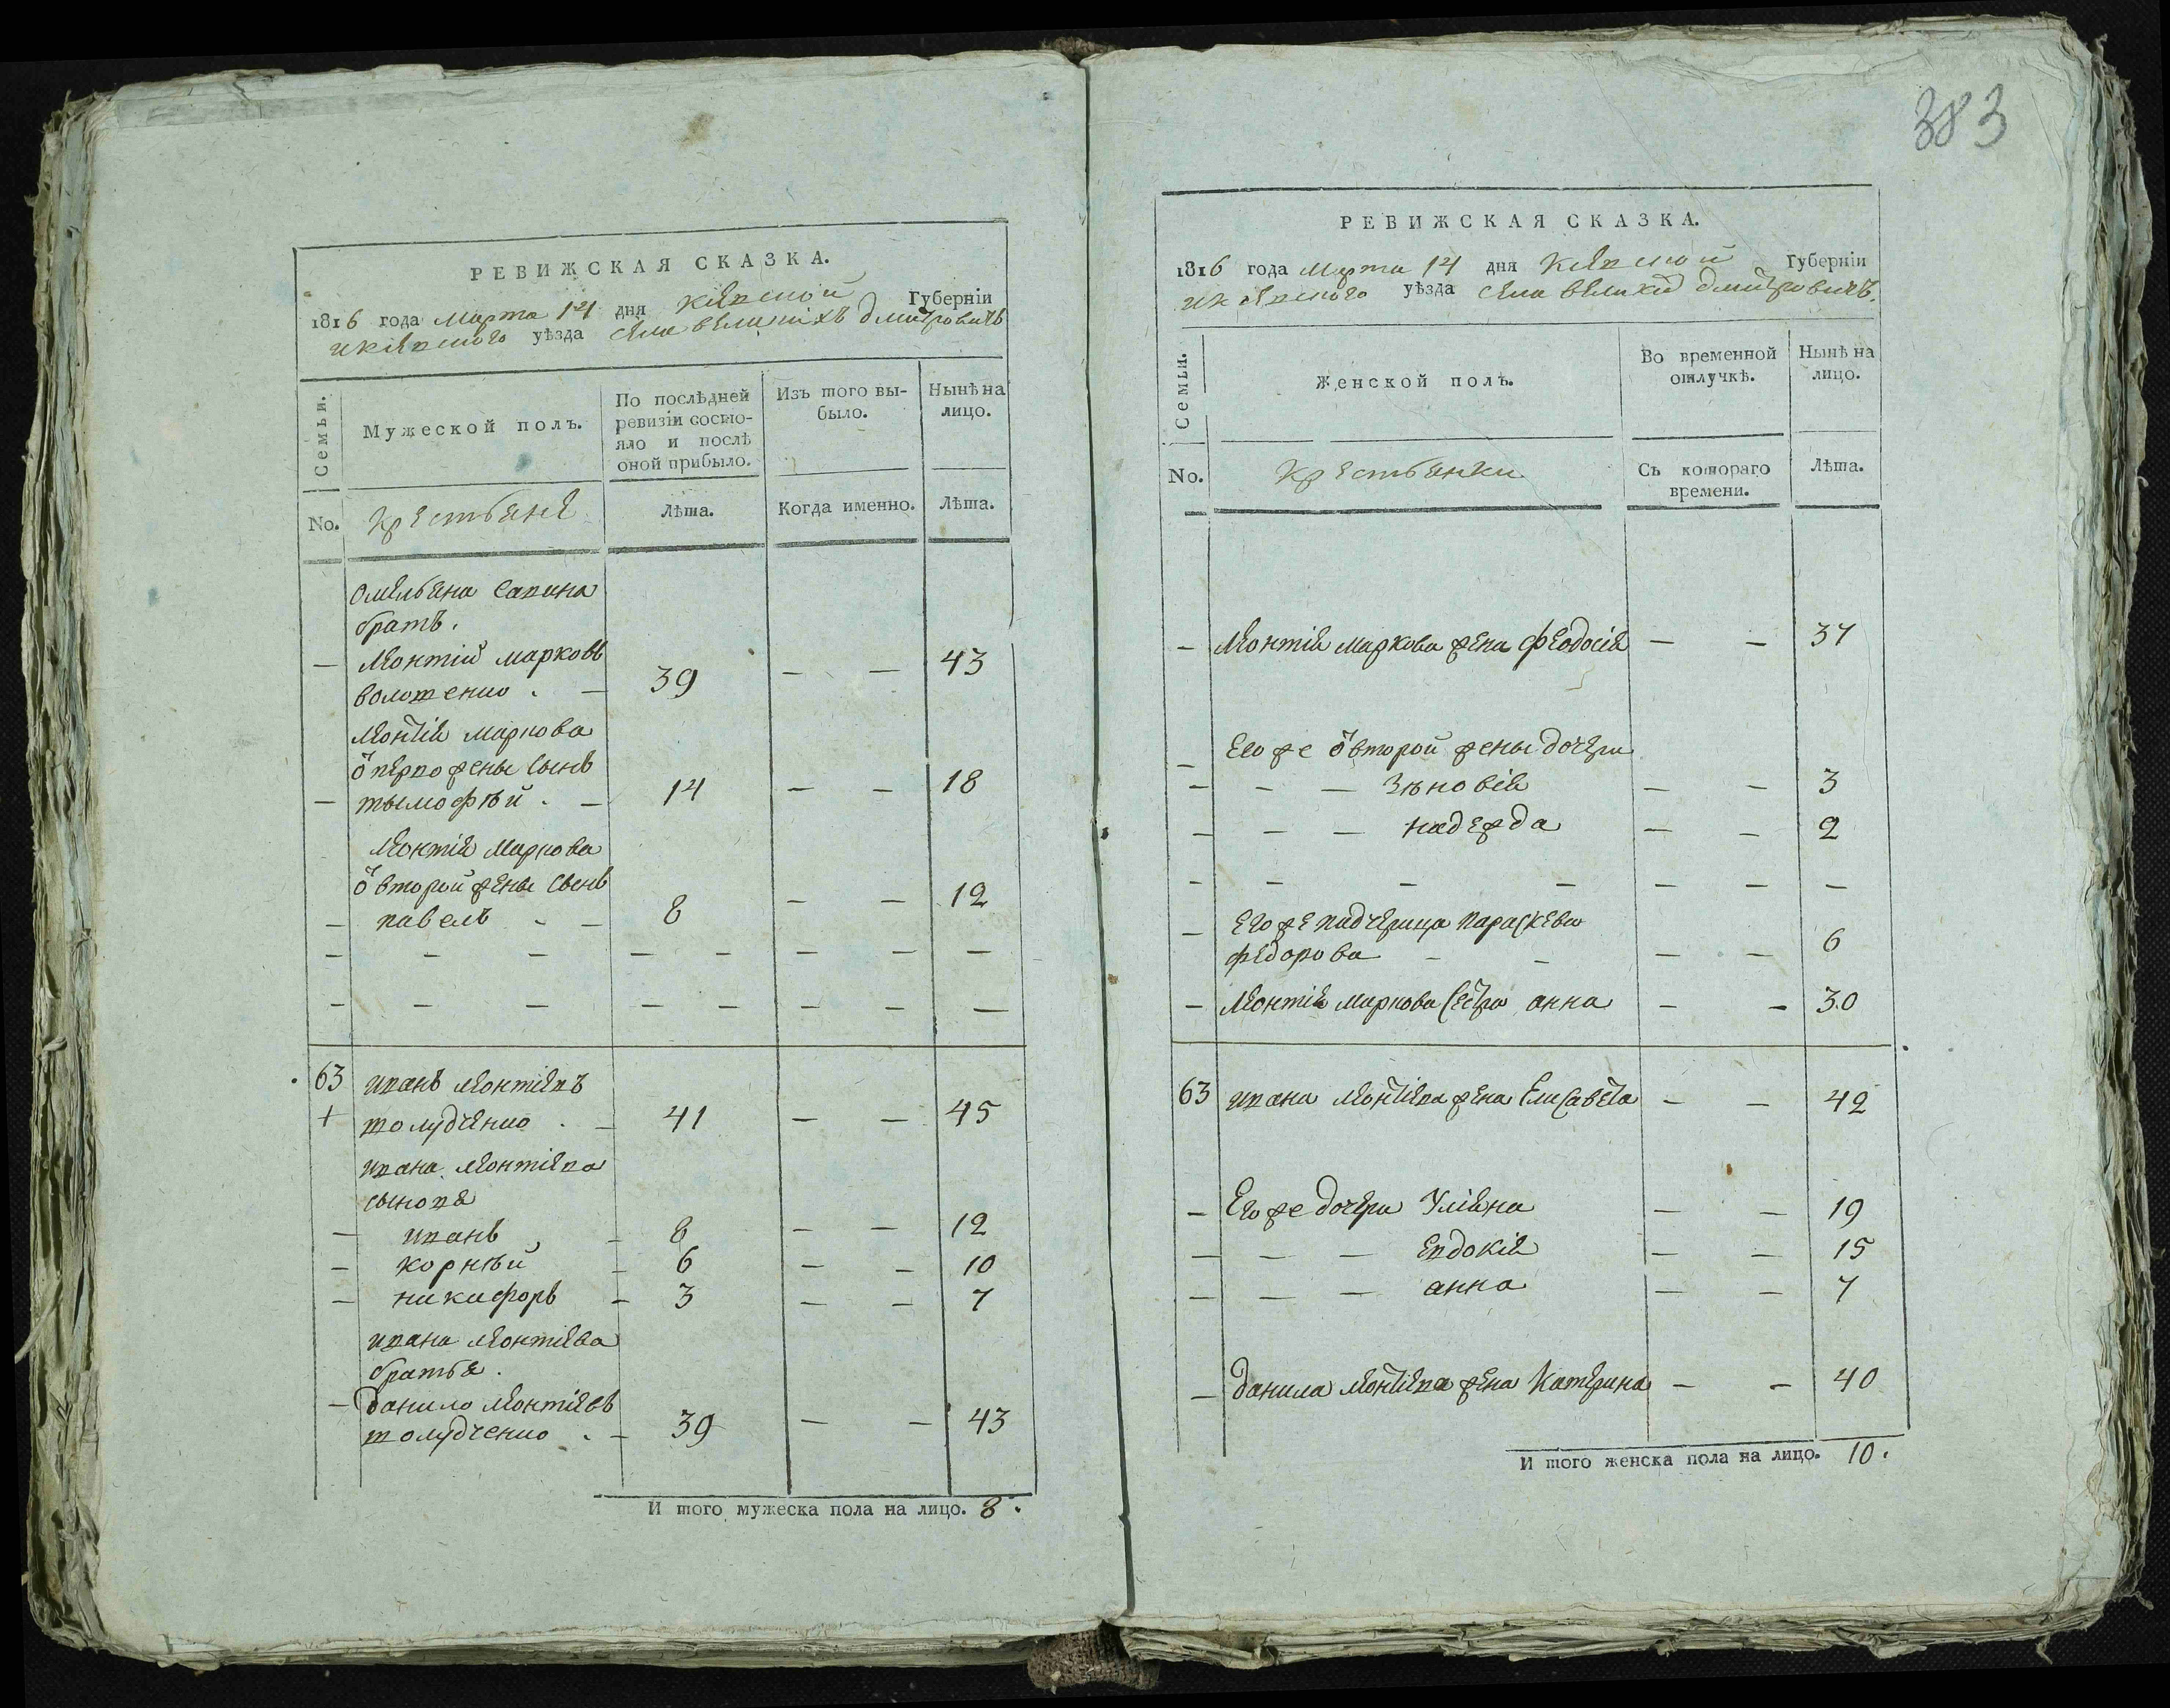 383
РЕВИЖСКАЯ СКАЗКА.
1816 года марта 14 дня Кіевской Губерніи
и Кіевского уѣзда села великихъ дмитровичъ
Семьи.
Мужеской полъ.
По послѣдней ревизіи состояло и послѣ оной прибыло.
Изъ того выбыло.
Нынѣ на лицо.
No.
Крестьяне
Лѣта.
Когда именно.
Лѣта.
Омельяна Савина
братъ.
— Леонтій марковъ
волошенко . — 39 — — 43
Леонтія маркова
ѿ первой жены сынъ
— тымофѣй . — 14 — — 18
Леонтія маркова
ѿ второй жены сынъ
— павелъ - — 8 — — 12
— — — — — — — —
— — — — — — — —
63 иванъ леонтіевъ
+ толудченко . — 41 — — 45
ивана леонтіева
сыновя
— иванъ — 8 — — 12
— корнѣй — 6 — — 10
— никифоръ — 3 — — 7
ивана леонтіева
братья.
— данило леонтіевъ
толудченко . — 39 — — 43
И того мужеска пола на лицо. 8.
РЕВИЖСКАЯ СКАЗКА.
1816 года марта 14 дня Кіевской Губерніи
и Кіевского уѣзда села великих дмитровичъ.
Семьи.
Женской полъ.
Во временной отлучкѣ.
Нынѣ на лицо.
No.
Крестьянки
Съ котораго времени.
Лѣта.
— Леонтія маркова жена феодосія — — 37
Его же ѿ второй жены дочери
— — — Зѣновія — — 3
— — — надежда — — 2
— — — — — — —
— Его же падчерица параскева
федорова — — — — 6
— Леонтія маркова сестра анна — — 30
63 ивана леонтіева жена Елисавета — — 42
— Его же дочери Уліяна — — 19
— — — Евдокія — — 15
— — — анна — — 7
— данила леонтіева жена Катерина — — 40
И того женска пола на лицо. 10.